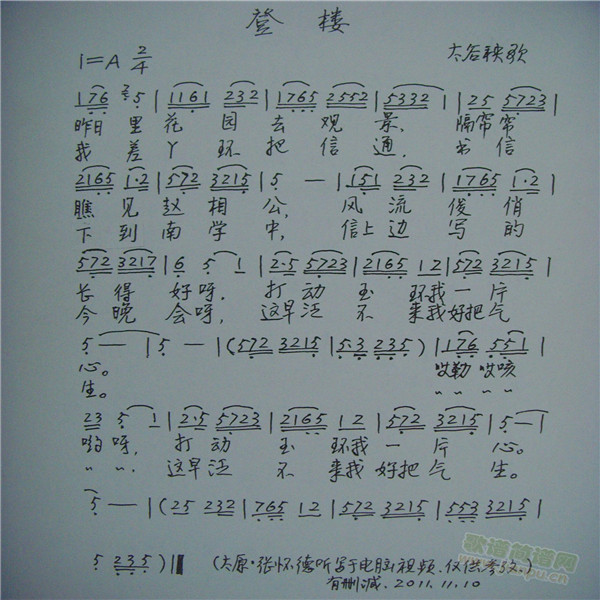 登 楼
1=A 2/4 太谷秧歌
176 5 | 1161 232 | 1765 2552 | 5332 | 25 5723 |
昨日 里 花 园 去 观 景, 隔帘 帘
我 差 丫 环 把 信 通, 书 信
2165 1·2 | 572 3215 | 5 — | 151 232 | 1765 1·2 |
瞧 见 赵 相 公, 风 流 俊 俏
下 到 南 学 中, 信上 边 写 的
572 3217 | 6 5 1 | 2·5 5723 | 2165 12 | 572 3215 |
长 得 好呀, 打 动 玉 环我 一 片
今 晚 会呀, 这早 泛 不 来我 好把 气
5 — | 5 — | (572 3215 | 5·3 235) | 176 551 |
心。 哎勒 哎咳
生。 〃 〃 〃 〃
23 5 1 | 2·5 5723 | 2165 12 | 572 3215 | 5 — |
哟呀, 打 动 玉 环我 一 片 心。
〃 〃. 这早 泛 不 来我 好把 气 生。
5 — | (25 232 | 765 12 | 572 3215 | 553 3215 |
5 235) || (太原·张怀德听写于电脑视频.仅供参改.)
有删减. 2011.11.10
歌谱简谱网